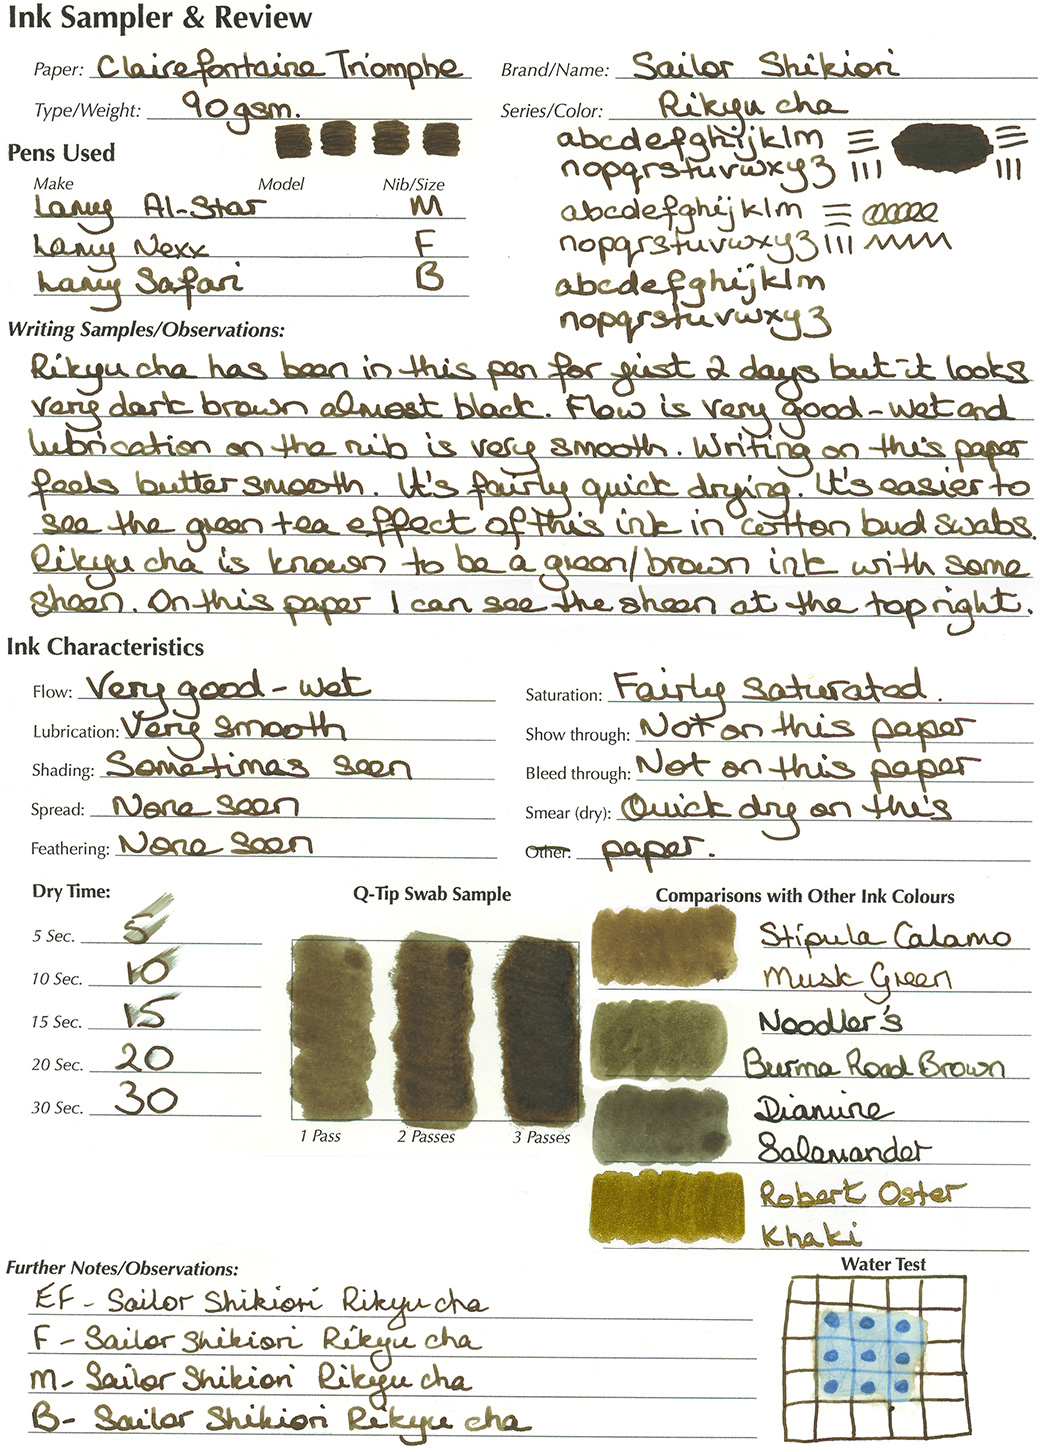 Ink Sampler & Review
Paper: Clairefontaine Triomphe
Brand/Name: Sailor Shikiori
Type/Weight: 90gsm.
Series/Color: Rikyu cha
abcdefghijklm
nopqrstuvwxyz
Pens Used
Make Model Nib/Size
Lamy Al-Star M
abcdefghijklm
nopqrstuvwxyz
Lamy Nexx F
Lamy Safari B
abcdefghijklm
nopqrstuvwxyz
Writing Samples/Observations:
Rikyu cha has been in this pen for just 2 days but it looks
very dark brown almost black. Flow is very good - wet and
lubrication on the nib is very smooth. Writing on this paper
feels butter smooth. It's fairly quick drying. It's easier to
see the green tea effect of this ink in cotton bud swabs.
Rikyu cha is known to be a green/brown ink with some
sheen. On this paper I can see the sheen at the top right.
Ink Characteristics
Flow: Very good - wet
Lubrication: Very smooth
Shading: Sometimes seen
Spread: None seen
Feathering: None seen
Saturation: Fairly saturated.
Show through: Not on this paper
Bleed through: Not on this paper
Smear (dry): Quick dry on this
Other: paper.
Dry Time:
5 Sec. 5
10 Sec. 10
15 Sec. 15
20 Sec. 20
30 Sec. 30
Q-Tip Swab Sample
1 Pass 2 Passes 3 Passes
Comparisons with Other Ink Colours
Stipula Calamo
Musk Green
Noodler's
Burma Road Brown
Diamine
Salamander
Robert Oster
Khaki
Further Notes/Observations:
EF - Sailor Shikiori Rikyu cha
F - Sailor Shikiori Rikyu cha
M - Sailor Shikiori Rikyu cha
B - Sailor Shikiori Rikyu cha
Water Test